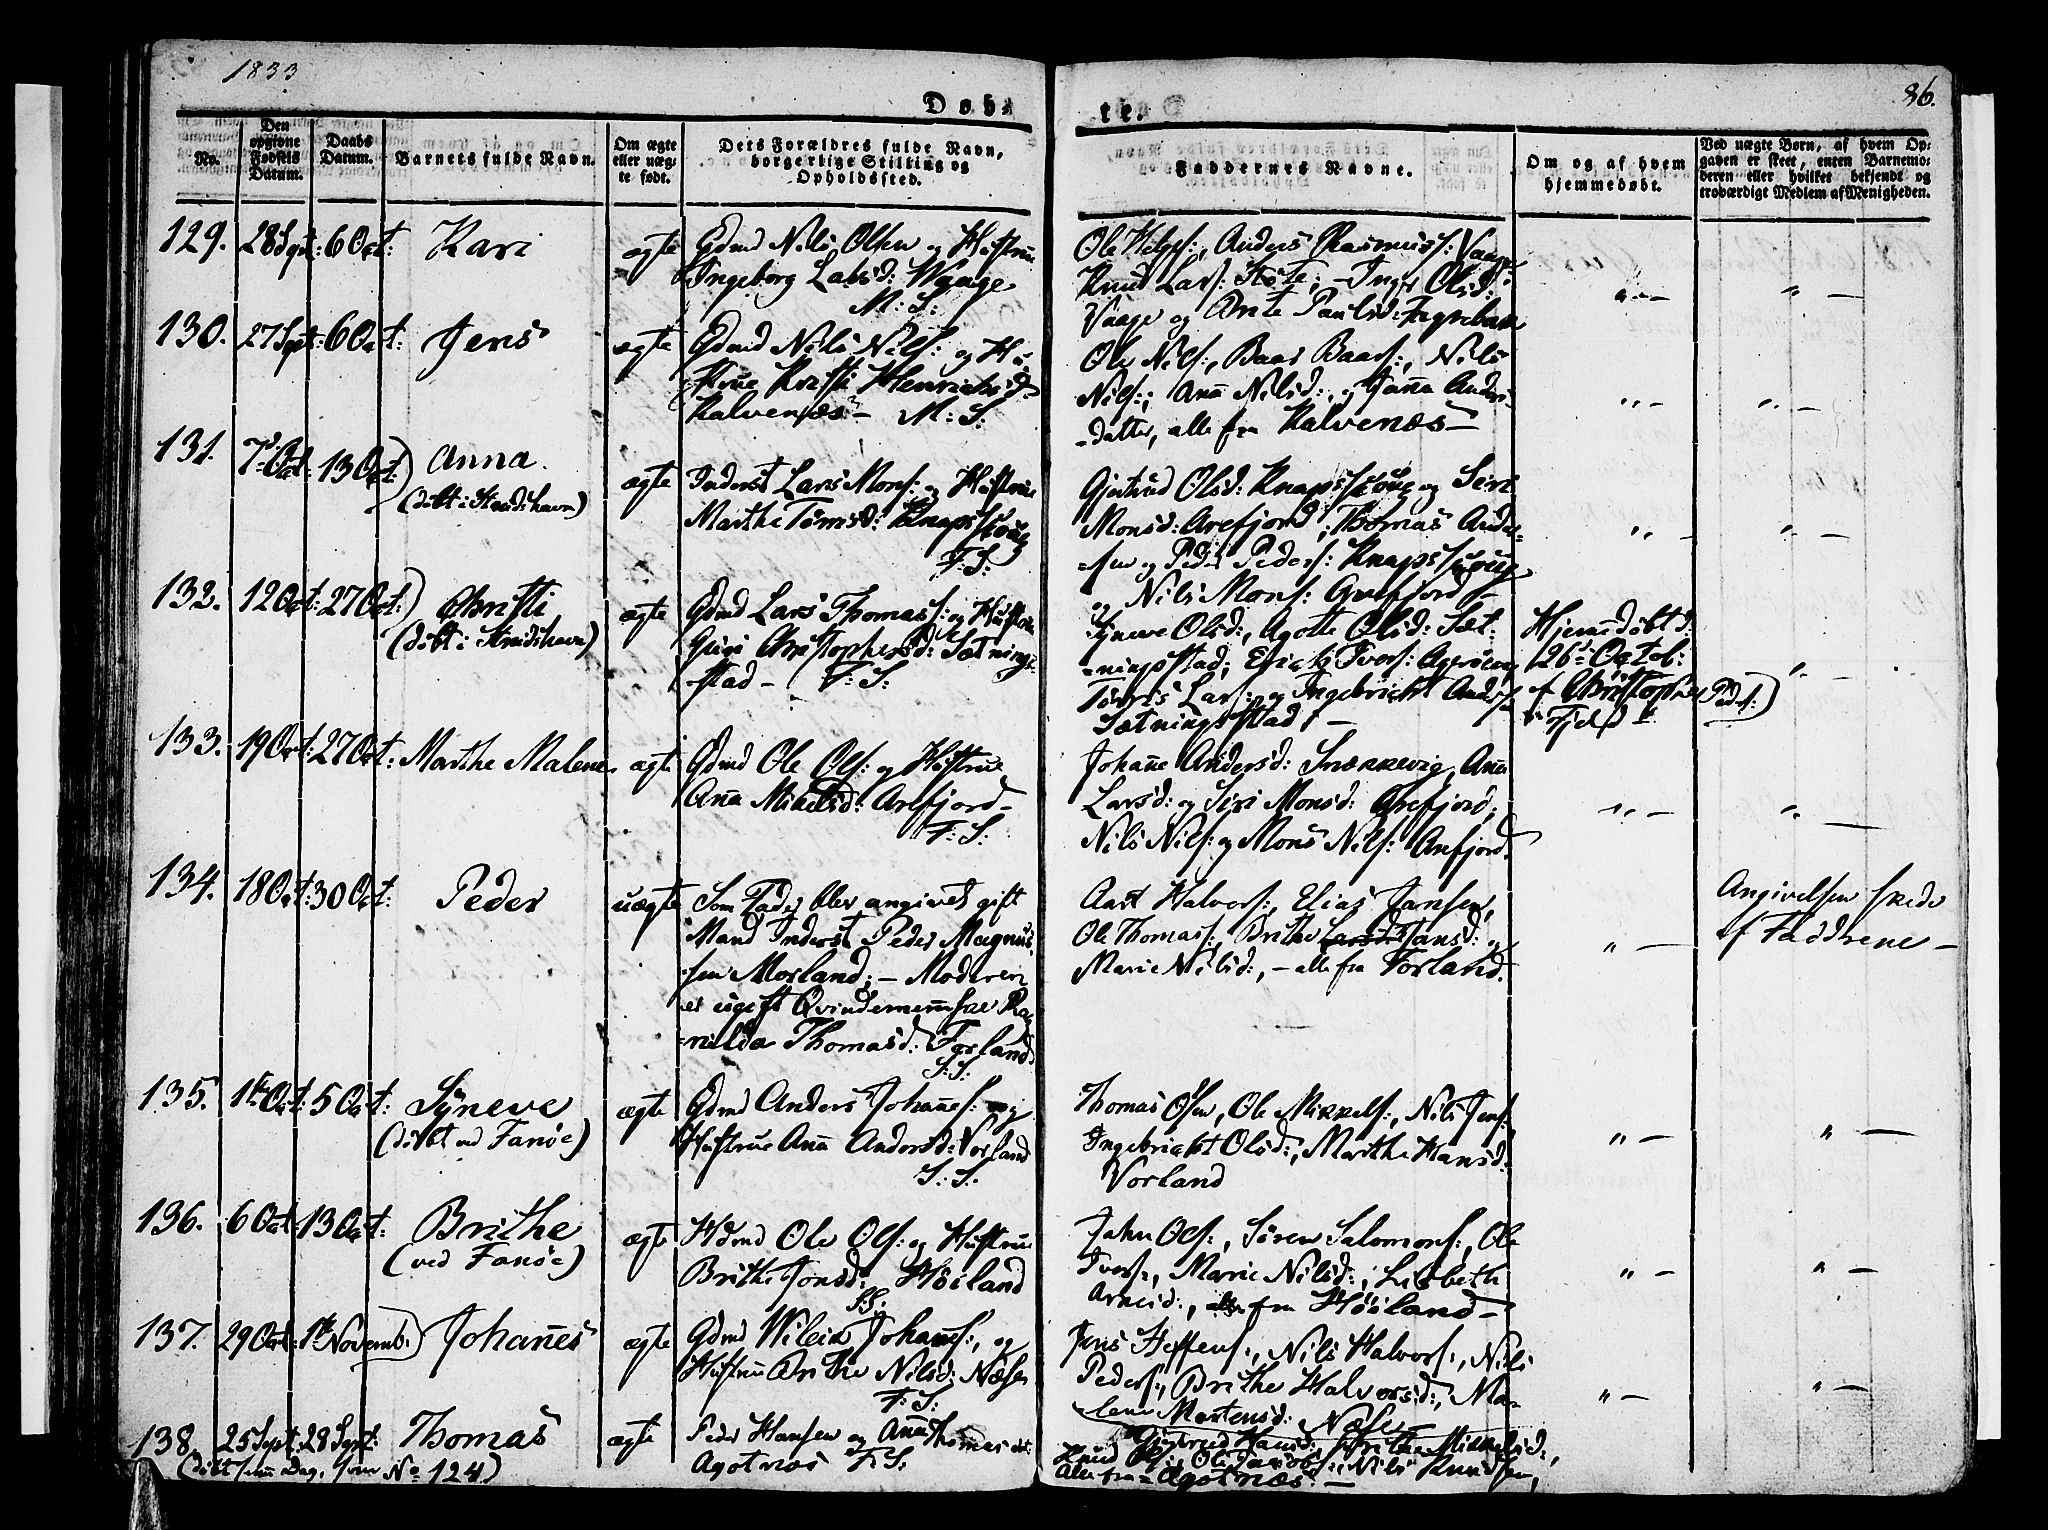 1833
86.
Døb-
te.
No.
Den opgivne Fødsels Datum.
Daabs Datum.
Barnets fulde Navn.
Om ægte eller uæg- te født.
Dets Forældres fulde Navn, borgerlige Stilling og Opholdssted.
Faddernes Navne.
Om og af hvem hjemmedøbt.
Ved uægte Børn, af hvem Op- gaven er skeet, enten Barnemo- deren eller hvilket bekjendt og troværdigt Medlem af Menigheden.
129. 28 Sept: 6 Oct: Kari ægte Gdmd Nils Olsen og Hustrue
Ingeborg Larsd: Waage
M: S:
Ole Helges:, Anders Rasmuss: Vaage
Knud Lars: - Inger Olsd:
Vaage og Ante Paulsd:
" — " —
130. 27 Sept: 6 Oct: Jens ægte Gdmd Nils Nils: og Hu-
strue Kristi Henrichsd:
Kalvenæs — M: S:
Ole Nils:, Baar Baars:, Nils
Nils:, Aña Nilsd:, og Joña Anders-
-datter, alle fra Kalvenæs —
" — " —
131. 7de Oct: 13 Oct:) Anna
(døbt i Strudshavn)
ægte Inderst Lars Mons: og Hustrue
Marthe Tomsd: Knapskoug
F: S:
Gjertrud Olsd: Knapskoug og Siri
Monsd: Arefjord, Thomas Ander-
-sen og Peder Peders: Knapskoug
Nils Mons: Arefjord —
" — " —
132. 12 Oct: 27 Oct:) Christi
(døbt i Strudshavn)
ægte Gdmd Lars Thomass: og Hustrue
Guri Christophersd: Sætnings-
-stad — F: S:
Syneve Olsd:, Agotte Olsd: Sæt-
-ningsstad, Erich Ivers:
Lars: og Ingebricht Anders:
Sætningsstad —
Hjemedøbt d:
26de Octob:
af Christopher Peders:)
Fjeld
" —
133. 19 Oct: 27 Oct: Marthe Malene ægte Gdmd Ole Ols: og Hustrue
Aña Mikelsd: Arefjord —
F: S:
Johañe Andersd: Snekkevig, Aña
Larsd: og Siri Monsd: Arefjord,
Nils Nils: og Mons Nils: Arefjord.
" — " —
134. 18 Oct: 30 Oct: Peder uægte Som Fader blev angivet gift
Mand Inderst Peder Magnus-
-sen Morland; — Moderen
er ugift Qvindemenske Rag-
-nilda Thomasd: Forland
S: S:
Aart Halvors:, Elias Jansen,
Ole Thomass:, Brithe Jansd: og
Marie Nilsd:, — alle fra Forland.
" —
Angivelsen skede
af Faddrene —
135. 1ste Oct: 5 Oct: Syneve
(døbt ved Fanøe)
ægte Gdmd Anders Johañes: og
Hustrue Aña Andersd: Vorland
S: S:
Thomas Olsen, Ole Mikkels:, Nils Jens:
Ingebricht Olsd:, Marthe Hansd:
Vorland
" — " —
136. 6 Oct: 13 Oct: Brithe
(ved Fanøe)
ægte Hdmd Ole Ols: og Hustrue
Brithe Jonsd: Høiland
S: S:
John Ols:, Søren Salomons:, Ole
Ivers:, Marie Nilsd:, Lisbeth
Arnesd:, alle fra Høiland —
" — " —
137. 29 Oct: 1ste Novemb:) Johañes ægte Gdmd Johañes:, og
Hustrue Brithe Nilsd: Næse
F: S:
Jens Steffens:, Nils Halvors:, Nils
Peders:, Brithe Halvorsd:, Ma-
-lene Mortensd: Næse
" — " —
138. 25 Sept: 28 Sept: Thomas ægte Peder Hansen og Aña Thomasdt:
Agotnæs F: S:
(døbt samme Dag, som No 124)
Gjertrud Hansd:, Brithe Mikkelsd:,
Knud Ols:, Ole Jacobs:, Nils Knudsen,
Alle fra Agotnæs: —